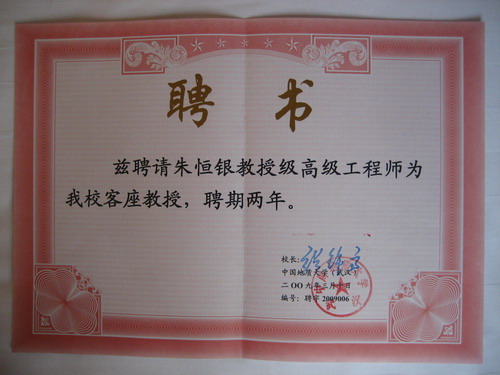 聘书
兹聘请朱恒银教授级高级工程师为
我校客座教授，聘期两年。
校长：
中国地质大学（武汉）
二〇〇九年三月十日
编号：聘字2009006